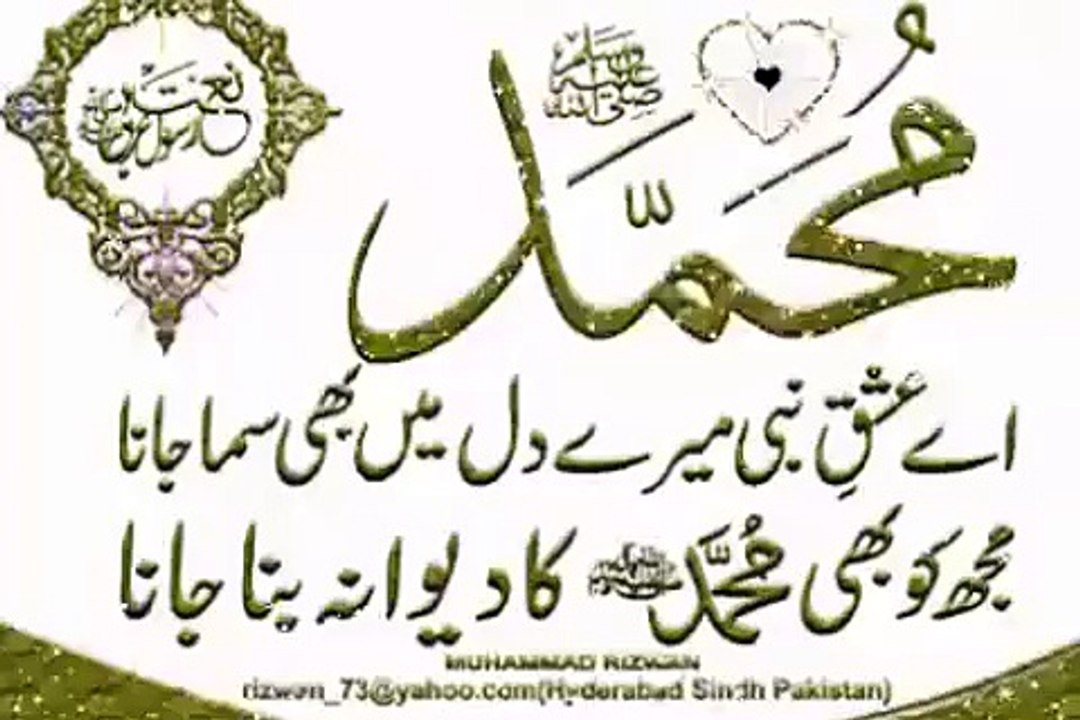 نعت
رسول عربی ﷺ
صلی اللہ علیہ وسلم
مُحَمَّد
اے عشقِ نبی میرے دل میں بھی سما جانا
مُجھ کو بھی مُحمَّد ﷺ کا دیوانہ بنا جانا
MUHAMMAD RIZWAN
rizwan_73@yahoo.com(Hyderabad Sindh Pakistan)